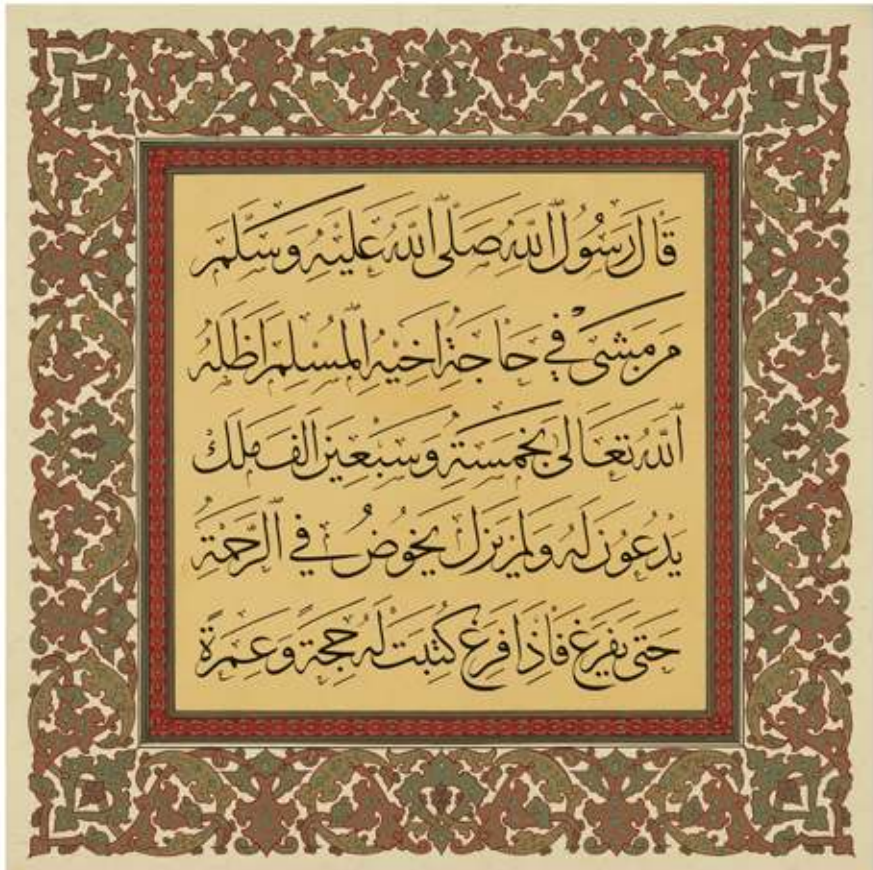 قَالَ رَسُولُ اللّٰهِ صَلَّى اللّٰهُ عَلَيْهِ وَسَلَّمَ
مَن مَشَى فِي حَاجَةِ اَخِيْهِ الْمُسْلِمِ اَظَلَّهُ
اَللّٰهُ تَعَالَى بِخَمْسَةٍ وَسَبْعِيْنَ اَلْفَ مَلَكٍ
يَدْعُوْنَ لَهُ وَلَمْ يَزَلْ يَخُوْضُ فِي الرَّحْمَةِ
حَتّٰى يَفْرَغَ فَاِذَا فَرَغَ كُتِبَتْ لَهُ حَجَّةً وَعُمْرَةً